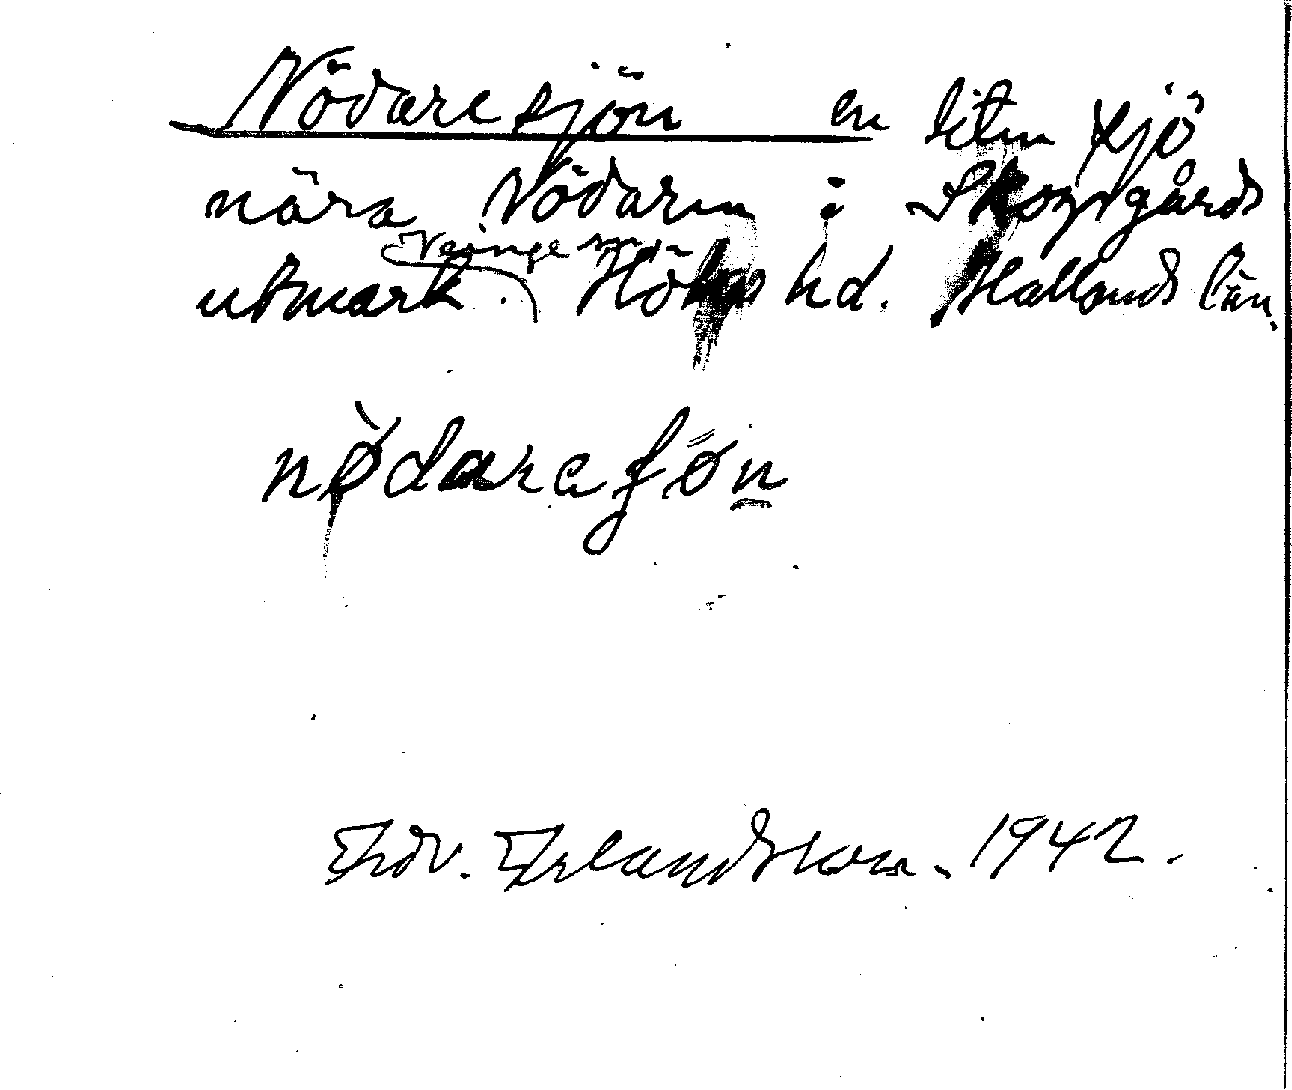 Nödaresjön en liten sjö
nära Nödaren i Skogsgårds
utmark. Veinge sn Höks hd. Hallands län.
nødareʃøn
Edv. Erlandsson. 1942.